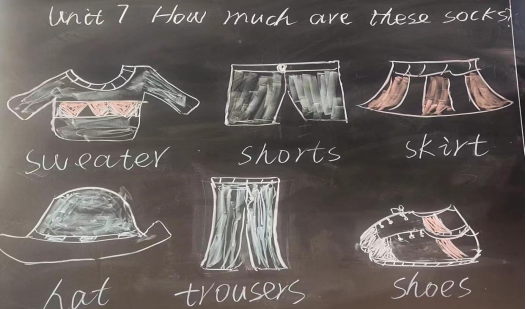 Unit 7 How much are these socks?
sweater shorts skirt
hat trousers shoes